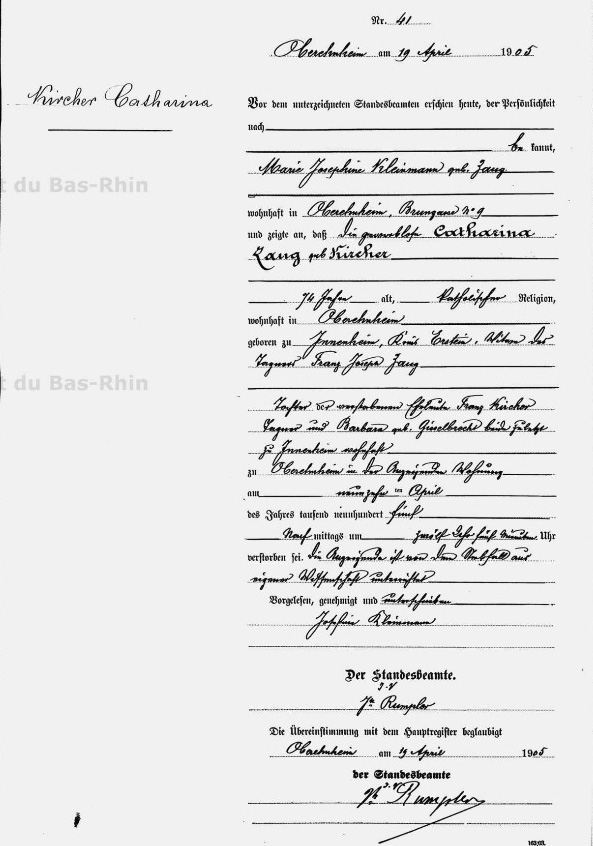 Nr. 41
Oberehnheim am 19 April 1905
Kircher Catharina
Vor dem unterzeichneten Standesbeamten erschien heute, der Persönlichkeit
nach
be kannt,
Marie Josephine Kleinmann geb. Zaug
t du Bas-Rhin
wohnhaft in Oberehnheim, Brungasse No 9
und zeigte an, daß die gewerblose Catharina
Zaug geb Kircher
74 Jahre alt, katholischer Religion,
wohnhaft in Oberehnheim
geboren zu Innenheim, Kreis Erstein, Witwe des
Tagners Franz Joseph Zaug
t du Bas-Rhin
Tochter der verstorbenen Eheleute Franz Kircher
Tagner und Barbara geb. Gisselbrecht beide zuletzt
zu Innenheim wohnhaft
zu Oberehnheim in der Anzeigenden Wohnung
am neunzehn ten April
des Jahres tausend neunhundert fünf
Nach mittags um zwölf Uhr fünf Minuten Uhr
verstorben sei. Die Anzeigende ist von dem Sterbfall aus
eigener Wissenschaft unterrichtet
Vorgelesen, genehmigt und unterschrieben
Josefine Kleinmann
Der Standesbeamte.
J. V
Rumpler
Die Übereinstimmung mit dem Hauptregister beglaubigt
Oberehnheim am 19 April 1905
der Standesbeamte
J. V
Rumpler
163;03.